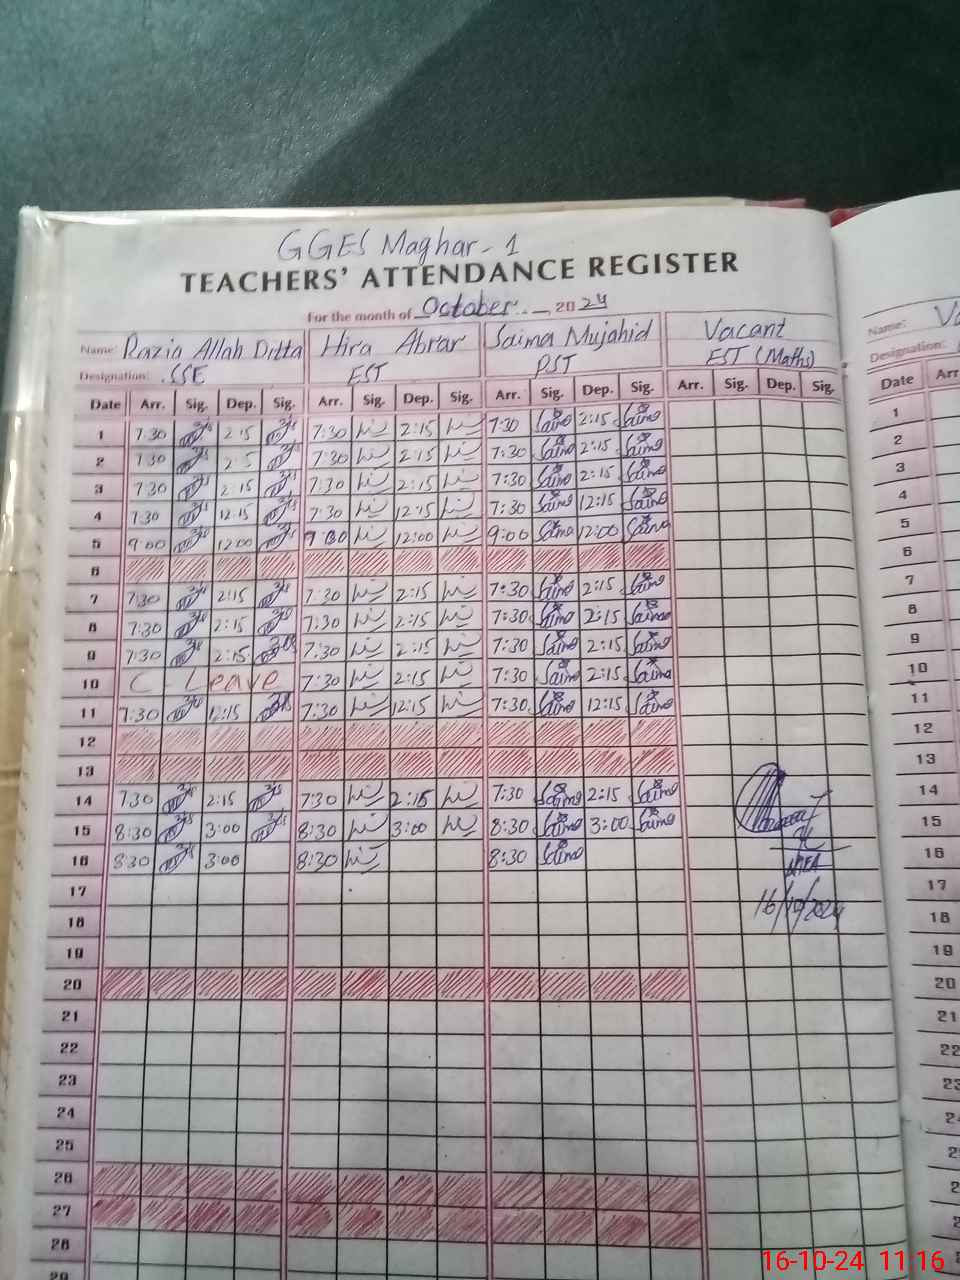 GGES Maghar-1
TEACHERS' ATTENDANCE REGISTER
For the month of October 2024
Name: Razia Allah Ditta Hira Abrar Saima Mujahid Vacant
Designation: SSE EST PST EST (Maths)
Date Arr. Sig. Dep. Sig. Arr. Sig. Dep. Sig. Arr. Sig. Dep. Sig. Arr. Sig. Dep. Sig.
1 7:30 2:15 7:30 2:15 7:30 Saima 2:15 Saima
2 7:30 7:30 2:15 7:30 Saima 2:15 Saima
3 7:30 2:15 7:30 2:15 7:30 Saima 2:15 Saima
4 7:30 12:15 7:30 12:15 7:30 Saima 12:15 Saima
5 9:00 12:00 12:00 9:00 Saima 12:00 Saima
6
7 7:30 2:15 7:30 2:15 7:30 Saima 2:15 Saima
8 7:30 2:15 7:30 2:15 7:30 Saima 2:15 Saima
9 7:30 2:15 7:30 2:15 7:30 Saima 2:15 Saima
10 C. Leave 7:30 2:15 7:30 Saima 2:15 Saima
11 7:30 12:15 7:30 12:15 7:30 Saima 12:15 Saima
12
13
14 7:30 2:15 7:30 2:15 7:30 Saima 2:15 Saima
15 8:30 3:00 8:30 3:00 8:30 Saima 3:00 Saima
16 8:30 3:00 8:30 8:30 Saima
MEA
16/10/2024
17
18
19
20
21
22
23
24
25
26
27
28
29
Name:
Designation:
Date Arr
1
2
3
4
5
6
7
8
9
10
11
12
13
14
15
16
17
18
19
20
21
22
23
16-10-24 11:16